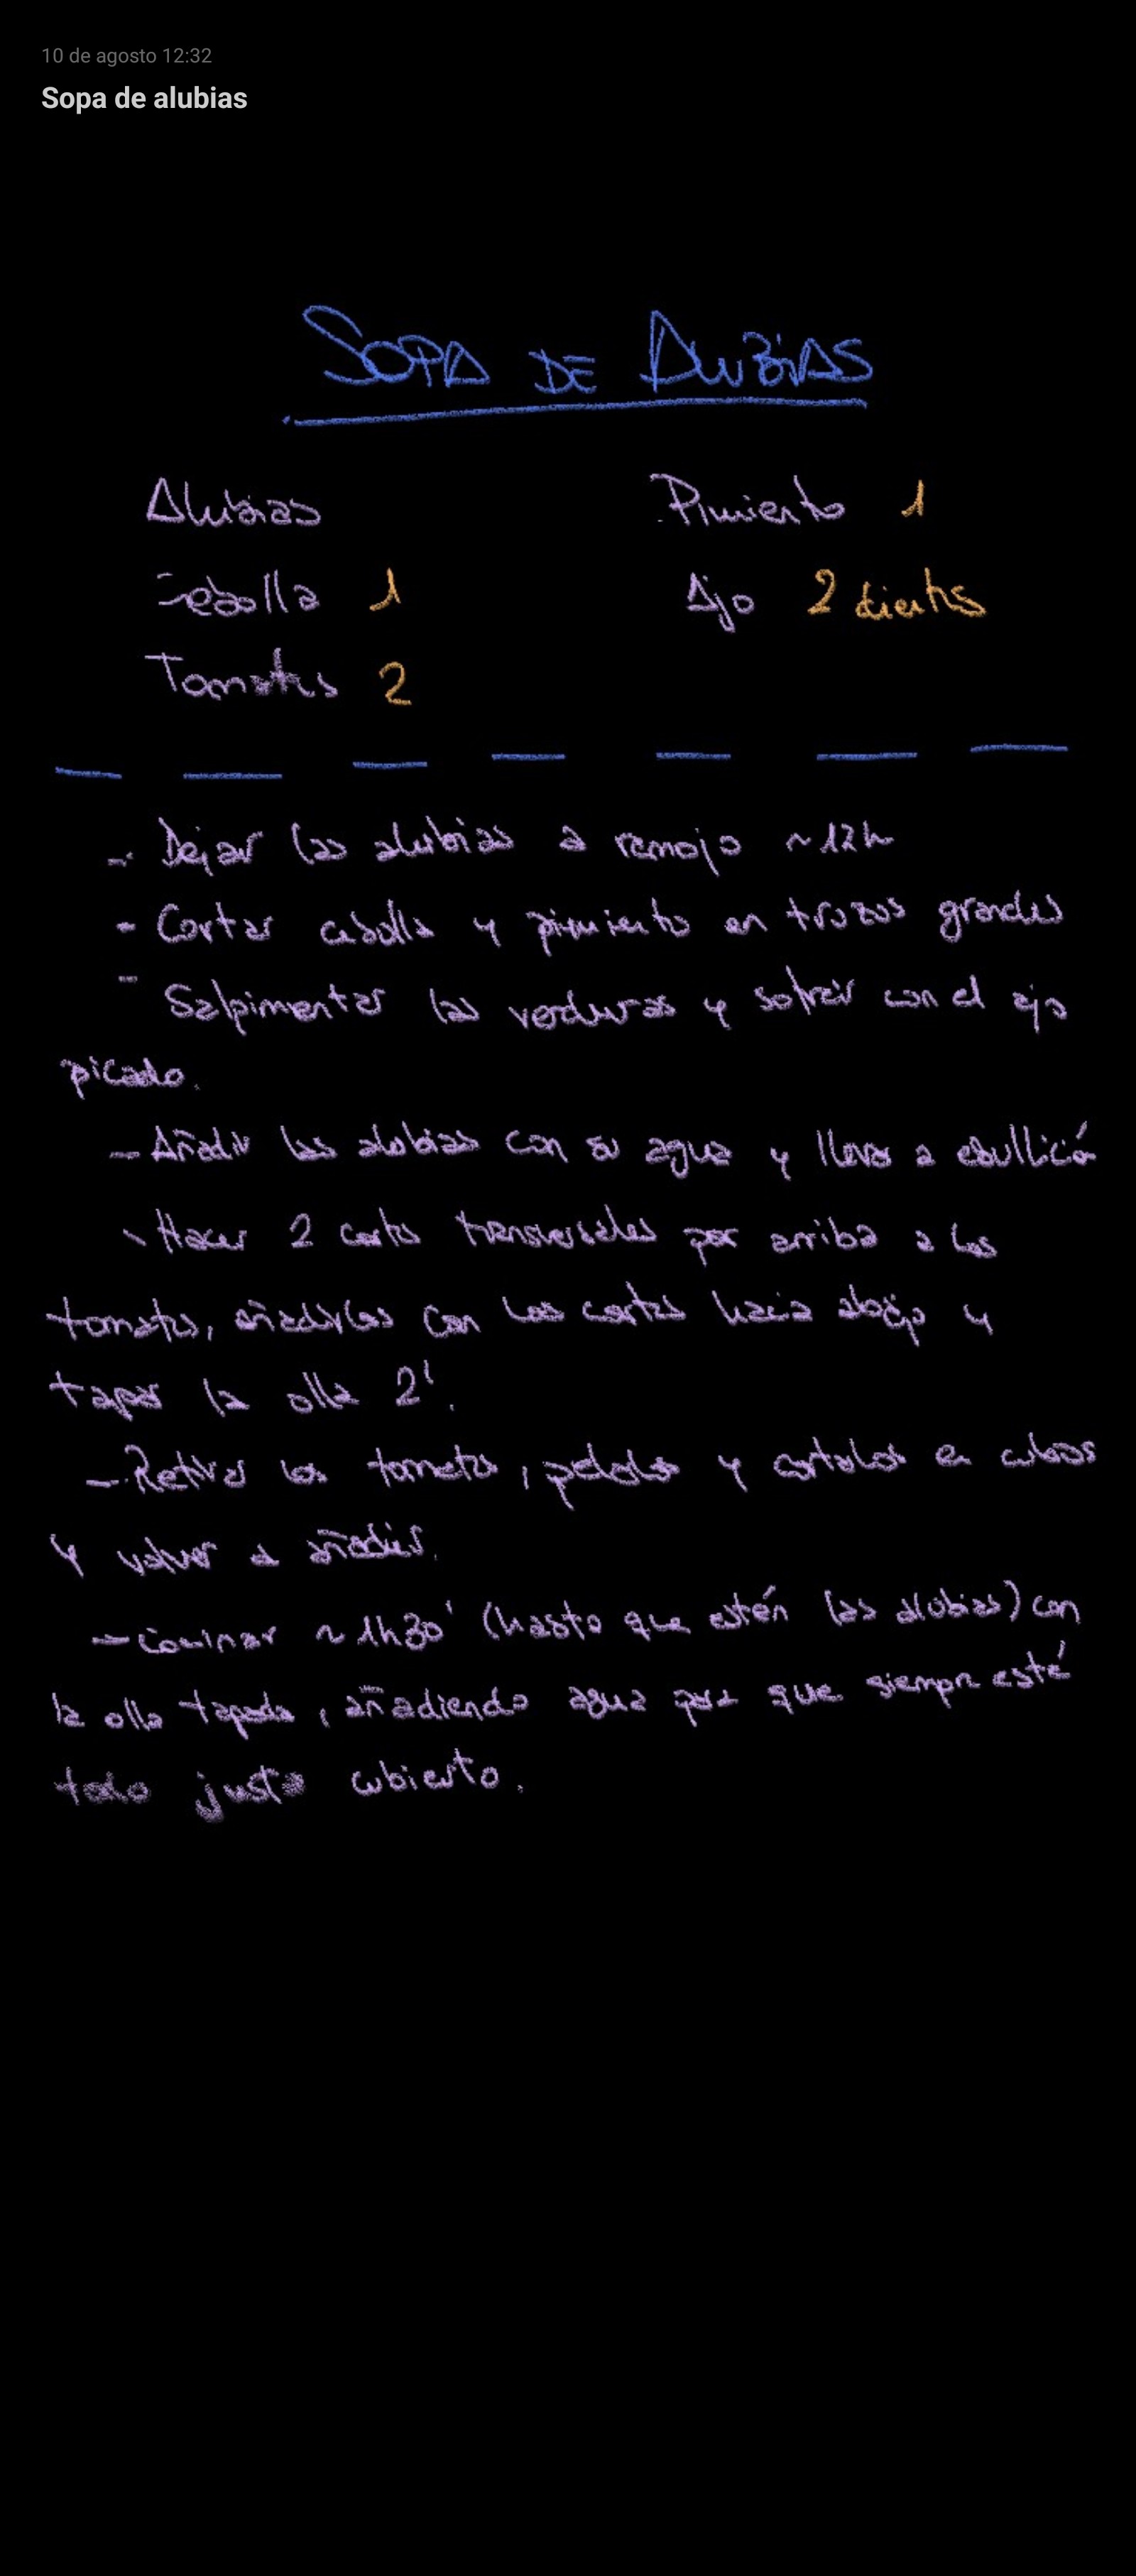 10 de agosto 12:32
Sopa de alubias
SOPA DE ALUBIAS
Alubias Pimiento 1
Cebolla 1 Ajo 2 dientes
Tomates 2
- Dejar las alubias a remojo ~12h
- Cortar cebolla y pimiento en trozos grandes
- Salpimentar las verduras y sofreír con el ajo
picado.
- Añadir las alubias con su agua y llevar a ebullición
- Hacer 2 cortes transversales por arriba a los
tomates, añadirlos con los cortes hacia abajo y
tapar la olla 2'.
- Retirar los tomates, pelarlos y cortarlos en cubos
y volver a añadir.
- Cocinar ~1h30' (hasta que estén las alubias) con
la olla tapada, añadiendo agua para que siempre esté
todo justo cubierto.